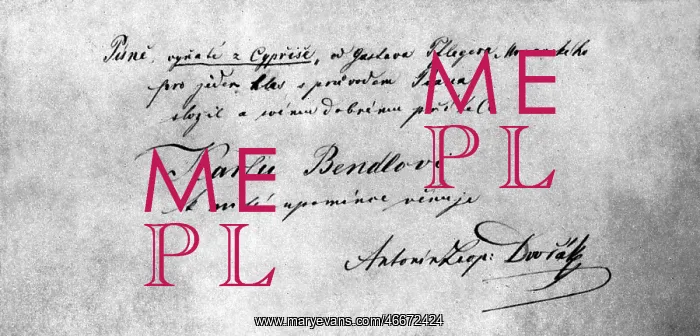 Písně, vyňaté z Cypřišě, od Gustava Pflegera Moravského
pro jeden hlas s průvodem Piana
složil a svému dobrému příteli
Karlu Bendlovi
k milé upomínce věnuje
Antonín Leop: Dvořák
ME
PL
ME
PL
www.maryevans.com/46672424